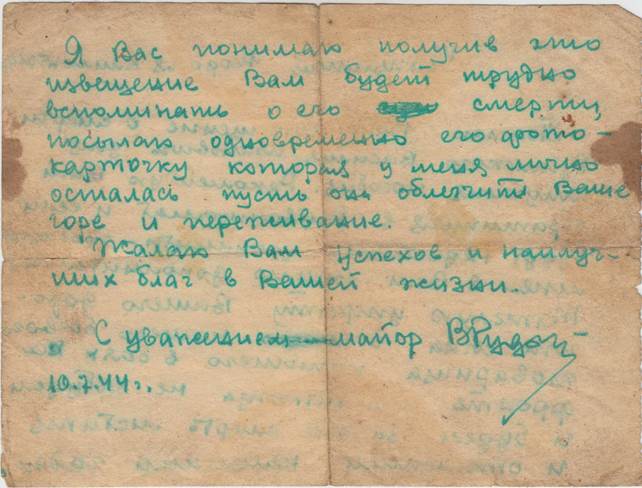 Я Вас понимаю получив это
извещение Вам будет трудно
вспоминать о его смерти,
посылаю одновременно его фото-
карточку которая у меня лично
осталась пусть она облегчит Ваше
горе и переживание.
Желаю Вам успехов и наилуч-
ших благ в Вашей жизни.
С уважением майор
10.7.44 г.